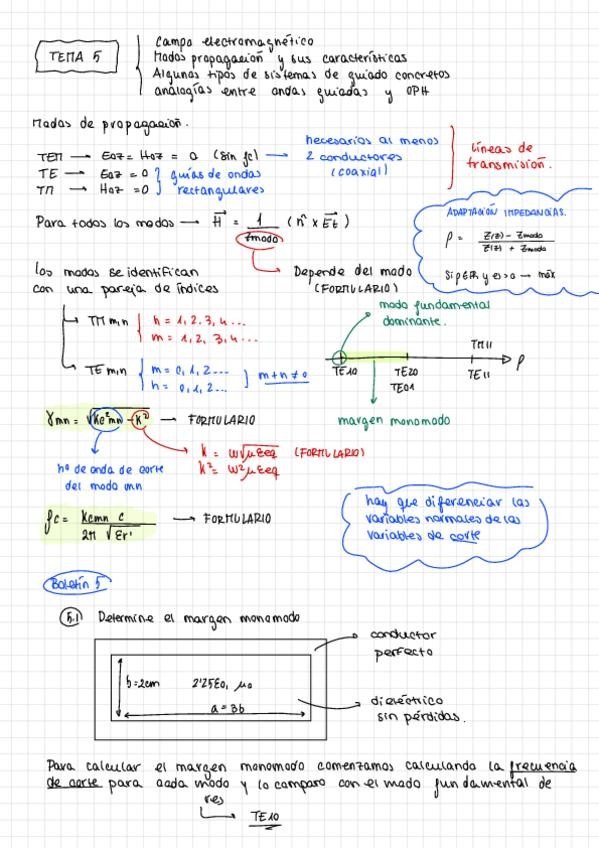 TEMA 5
Campo electromagnético
Modos propagación y sus características
Algunos tipos de sistemas de guiado concretos
analogías entre ondas guiadas y OPH
Modos de propagación.
TEM → Eoz = Hoz = 0 (sin fc) → necesarios al menos 2 conductores (coaxial)
líneas de transmisión.
TE → Eoz = 0
TM → Hoz = 0
guías de ondas rectangulares
Para todos los modos → H = 1/Zmodo (n̂ x Et)
Depende del modo (FORMULARIO)
ADAPTACIÓN IMPEDANCIAS.
ρ = Z(z) - Zmodo / Z(z) + Zmodo
Si ρ∈ℝ y es >0 → máx
Los modos se identifican
con una pareja de índices
TM mn
n = 1, 2, 3, 4...
m = 1, 2, 3, 4...
TE mn
m = 0, 1, 2...
n = 0, 1, 2...
m+n≠0
modo fundamental
dominante.
TM11
TE10
TE20
TE01
TE11
f
margen monomodo
γmn = √Kc²mn - K² → FORMULARIO
nº de onda de corte
del modo mn
K = ω√μεeq (FORMULARIO)
K² = ω²μεeq
fc = Kcmn c / 2π √εr' → FORMULARIO
hay que diferenciar las
variables normales de las
variables de corte
Boletín 5
5.1 Determine el margen monomodo
conductor
perfecto
b=2cm
2'25ε0, μ0
a = 3b
dieléctrico
sin pérdidas.
Para calcular el margen monomodo comenzamos calculando la frecuencia
de corte para cada modo y lo comparo con el modo fundamental de
res
TE10